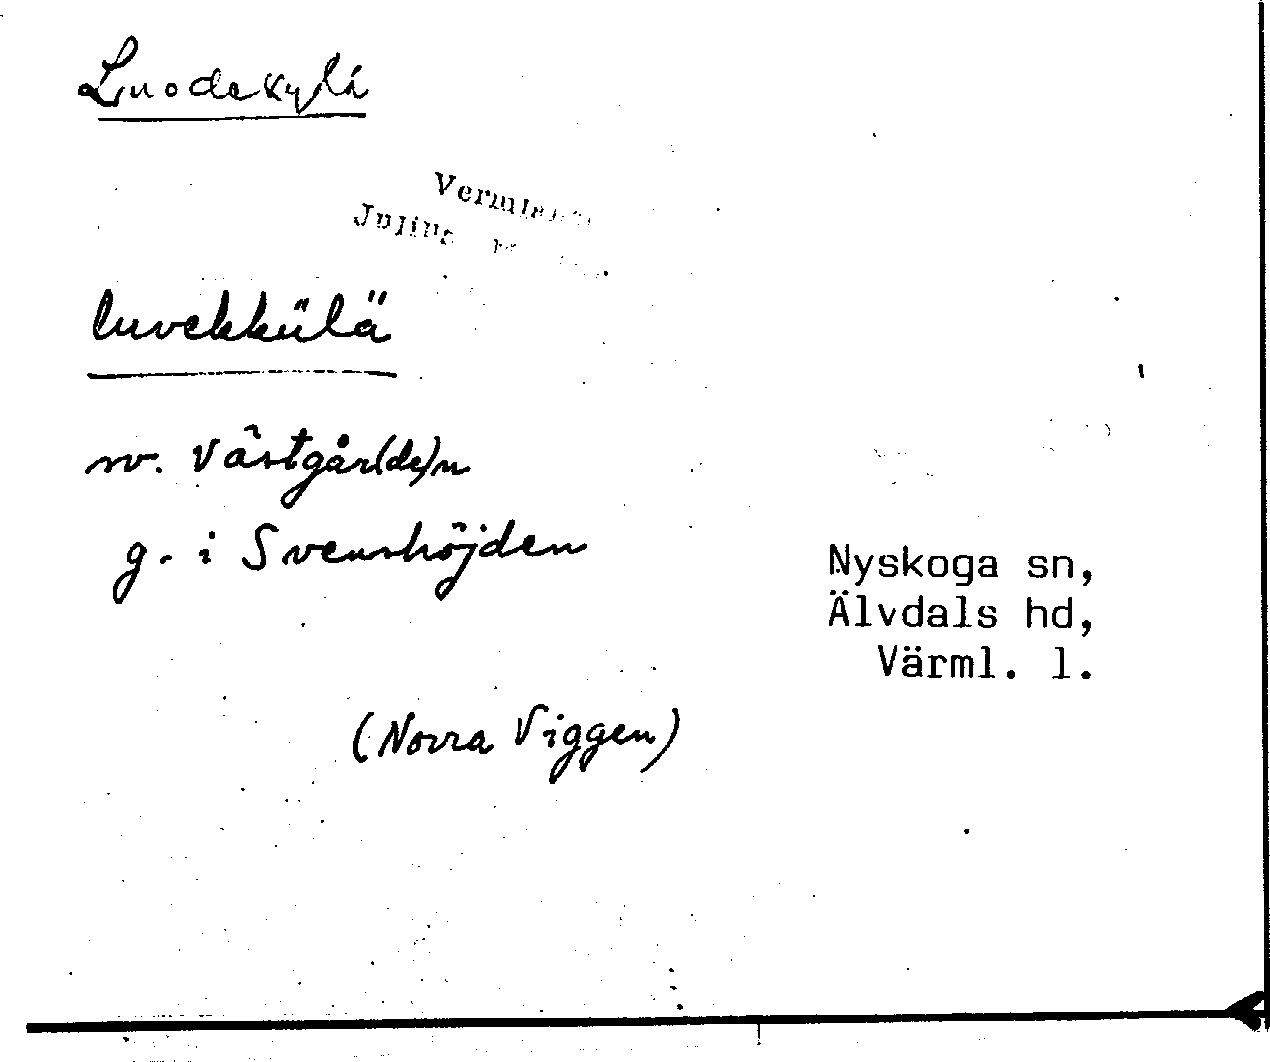 Luodekylä
Julius
luvekkülä
sv. Västgår(de)n
g. i Svenshöjden
Nyskoga sn,
Älvdals hd,
Värml. l.
(Norra Viggen)